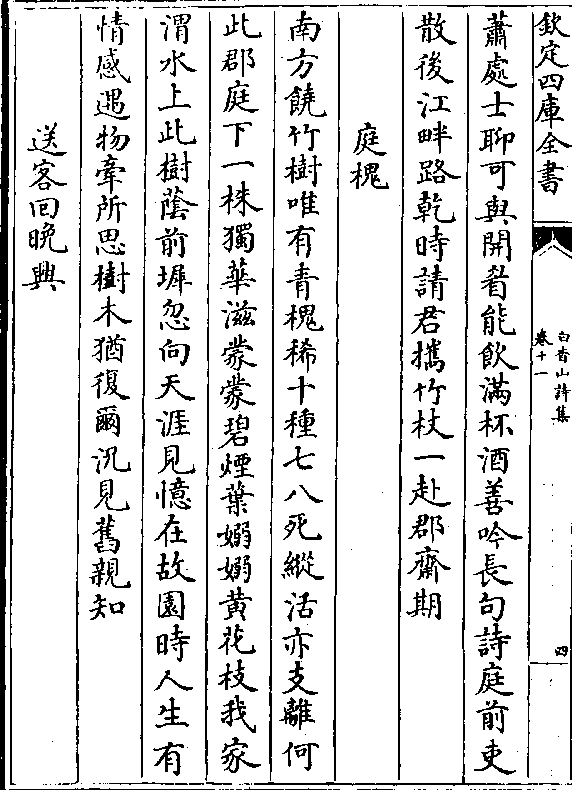 欽定四庫全書
白香山詩集
卷十一
四
蕭處士聊可與開眉能飲滿杯酒善吟長句詩庭前吏
散後江畔路乾時請君攜竹杖一赴郡齋期
庭槐
南方饒竹樹唯有青槐稀十種七八死縱活亦支離何
此郡庭下一株獨華滋蒙蒙碧煙葉嫋嫋黄花枝我家
渭水上此樹蔭前墀忽向天涯見憶在故園時人生有
情感遇物牽所思樹木猶復爾況見舊親知
送客回晚興